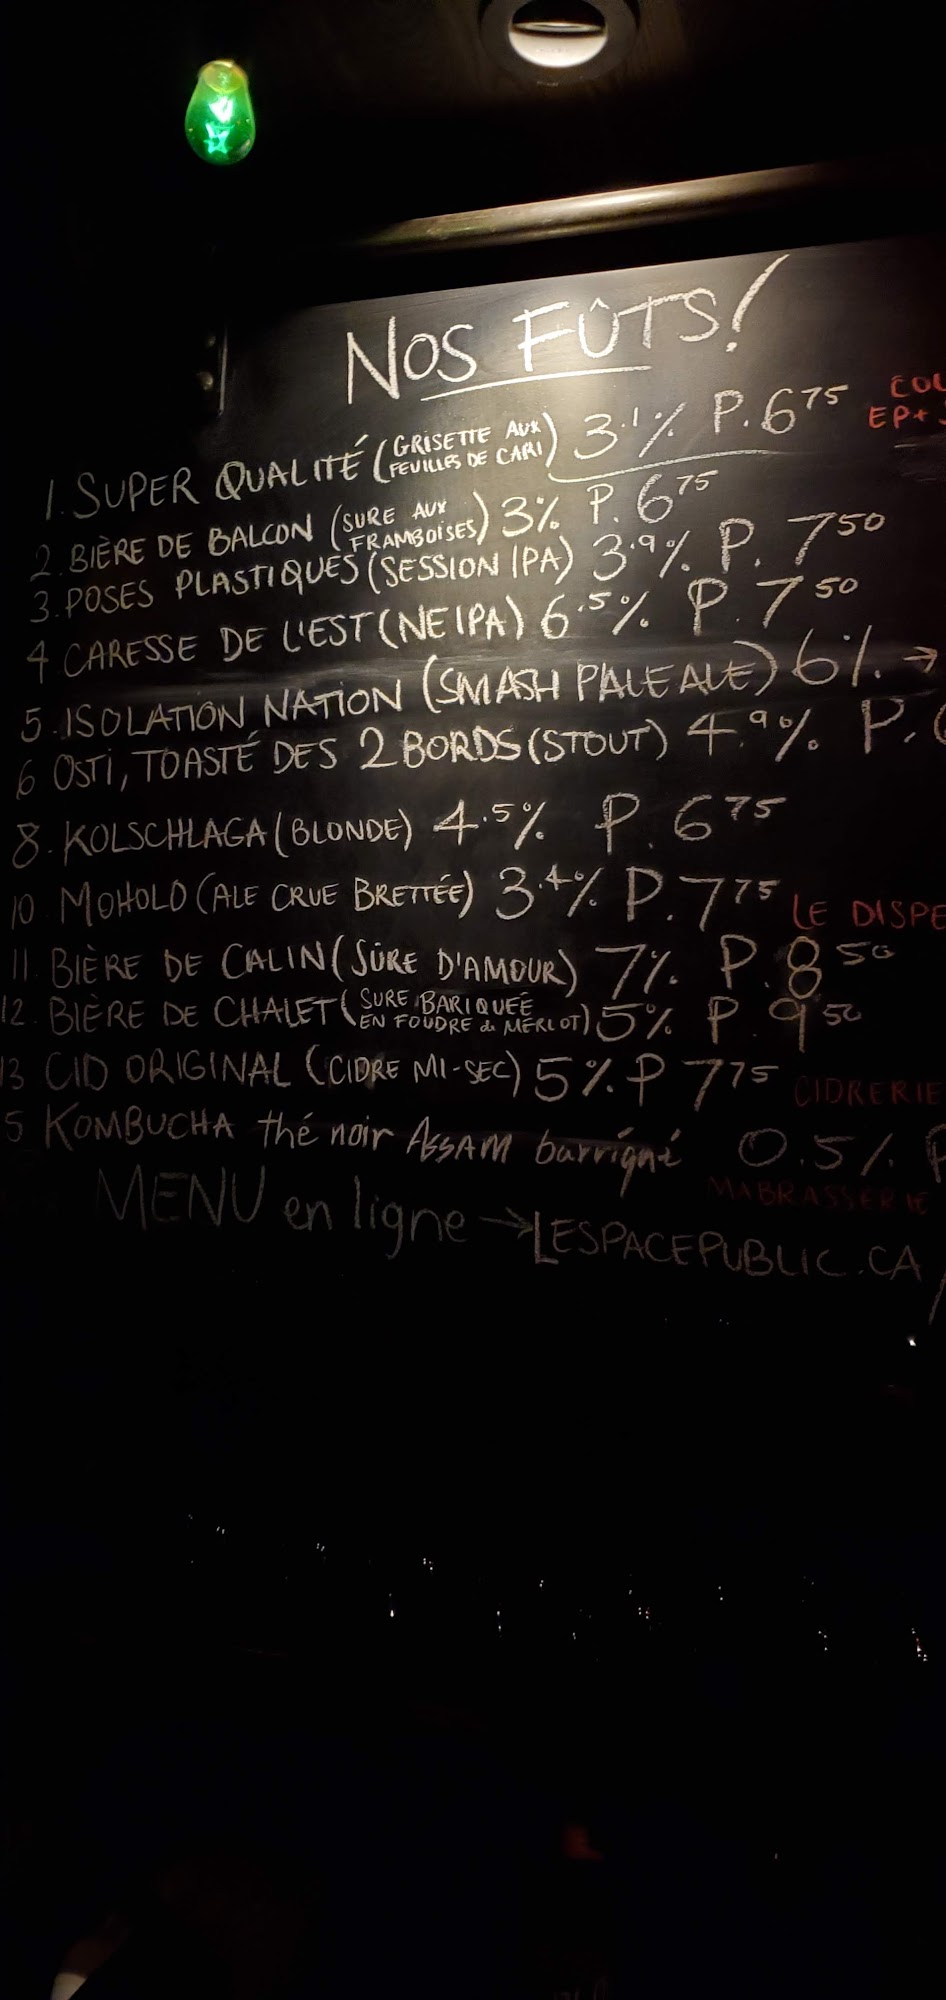 NOS FÛTS!
1. SUPER QUALITÉ (GRISETTE AUX FEUILLES DE CARI) 3.1% P. 6 75
COU
EP+
2. BIÈRE DE BALCON (SURE AUX FRAMBOISES) 3% P. 6 75
3. POSES PLASTIQUES (SESSION IPA) 3.9% P. 7 50
4 CARESSE DE L'EST (NEIPA) 6.5% P. 7 50
5. ISOLATION NATION (SMASH PALE ALE) 6% →
6 OSTI, TOASTÉ DES 2 BORDS (STOUT) 4.9% P.
8. KOLSCHLAGA (BLONDE) 4.5% P. 6 75
10 MOHOLO (ALE CRUE BRETTÉE) 3.4% P. 7 75
LE DISPE
11. BIÈRE DE CALIN (SÛRE D'AMOUR) 7% P. 8 50
12. BIÈRE DE CHALET (SURE BARIQUÉE EN FOUDRE de MERLOT) 5% P 9 50
13 CID ORIGINAL (CIDRE MI-SEC) 5% P 7 75
CIDRERIE
5 KOMBUCHA thé noir ASSAM barriqué 0.5% P
MABRASSERIE
MENU en ligne → LESPACEPUBLIC.CA